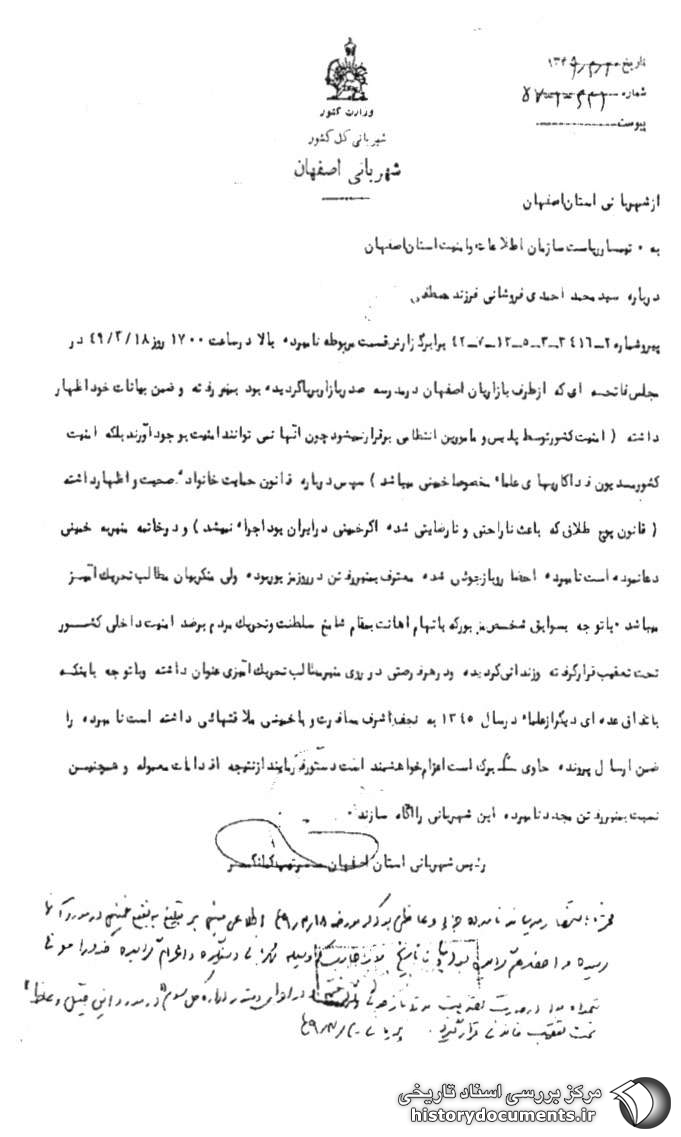 تاریخ
شماره
پیوست
وزارت کشور
شهربانی کل کشور
شهربانی اصفهان
از شهربانی استان اصفهان
به ۰ تیمسار ریاست سازمان اطلاعات و امنیت استان اصفهان
درباره سید محمد احمدی فروشانی فرزند مصطفی
پیرو شماره ۲ـ۳۴۱۶ـ۳ـ۵ـ۱۲ـ۷ـ۴۲ برابر گزارش قسمت مربوطه نامبرده بالا در ساعت ۱۷۰۰ روز ۴۹/۳/۱۸ در
مجلس فاتحه ای که از طرف بازاریان اصفهان در مدرسه صدر بازار برپا گردیده بود بمنبر رفته و ضمن بیانات خود اظهار
داشته ( امنیت کشور توسط پلیس و مامورین انتظامی برقرار نمیشود چون آنها نمی توانند امنیت بوجود آورند بلکه امنیت
کشور مدیون فداکاریهای علماء مخصوصا خمینی میباشد ) سپس درباره قانون حمایت خانواده صحبت و اظهار داشته
( قانون پوچ طلاق که باعث ناراحتی و نارضایتی شده اگر خمینی در ایران بود اجراء نمیشد ) و در خاتمه منبر به خمینی
دعا نموده است نامبرده احضار و بازجوئی شده معترف بمنبر رفتن در روز مزبور بوده ولی منکر بیان مطالب تحریک آمیز
میباشد ۰ با توجه بسوابق شخص مزبور که باتهام اهانت بمقام شامخ سلطنت و تحریک مردم بر ضد امنیت داخلی کشور
تحت تعقیب قرار گرفته و زندانی گردیده و در هر فرصتی در روی منبر مطالب تحریک آمیزی عنوان داشته و با توجه باینکه
باتفاق عده ای دیگر از علماء در سال ۱۳۴۵ به نجف اشرف مسافرت و با خمینی ملاقتهائی داشته است نامبرده را
ضمن ارسال پرونده حاوی برگ است اعزام خواهشمند است دستور فرمایند از نتیجه اقدامات معموله و همچنین
نسبت بمنبر رفتن مجدد نامبرده این شهربانی را آگاه سازند ۰
رئیس شهربانی استان اصفهان
نامبرده جزء وعاظی بود که مورخه اطلاعی مبنی بر تبلیغ به نفع خمینی در مورد آنها
رسیده
در مورد این قبیل وعاظ
تحت تعقیب قانونی قرار گیرد.
مرکز بررسی اسناد تاریخی
historydocuments.ir